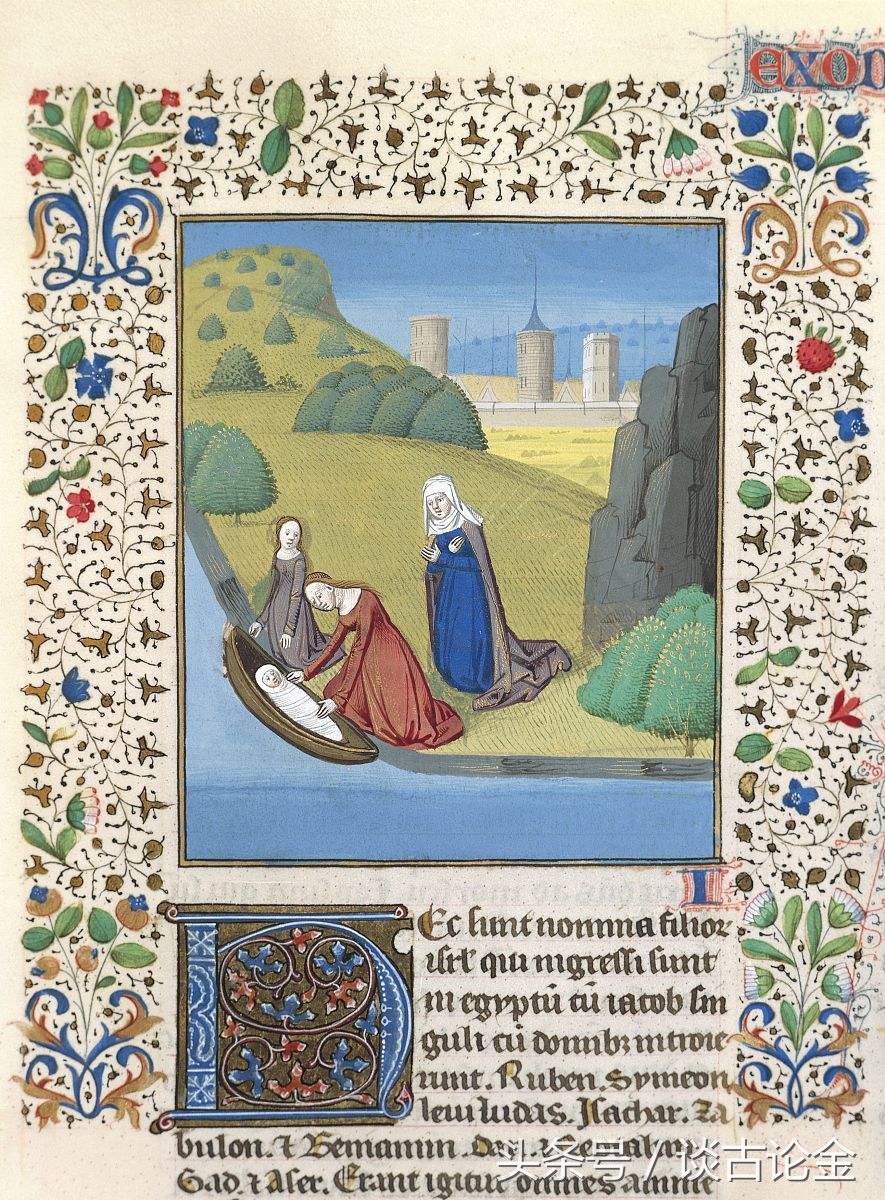 EXOD
I
HEc sunt nomina filior
isrl qui ingressi sunt
in egyptū cū iacob sin
guli cū domibꝫ introie
runt. Ruben. Symeon
leui iudas. Isachar. Za
bulon. ⁊ Beniamin. dan
Gad. ⁊ Aser. Erant igitur omnes anime
头条号 / 谈古论金